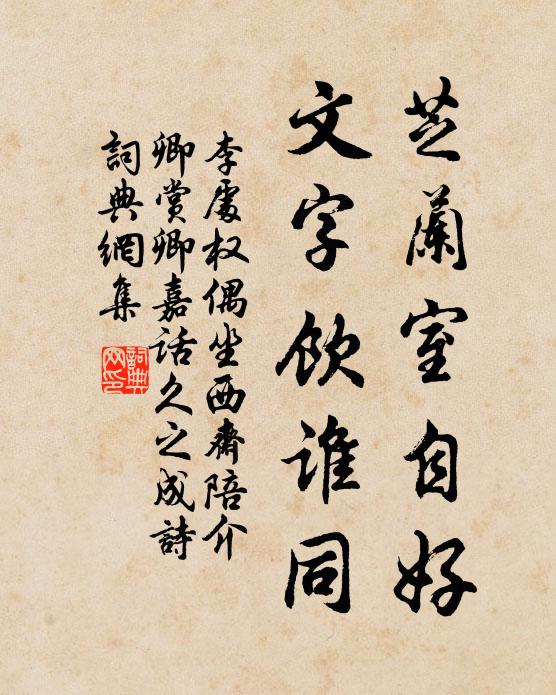 芝蘭室自好
文字飲誰同
李處权偶坐西齋陪介
卿赏卿嘉话久之成詩
詞典網集
詞典網印